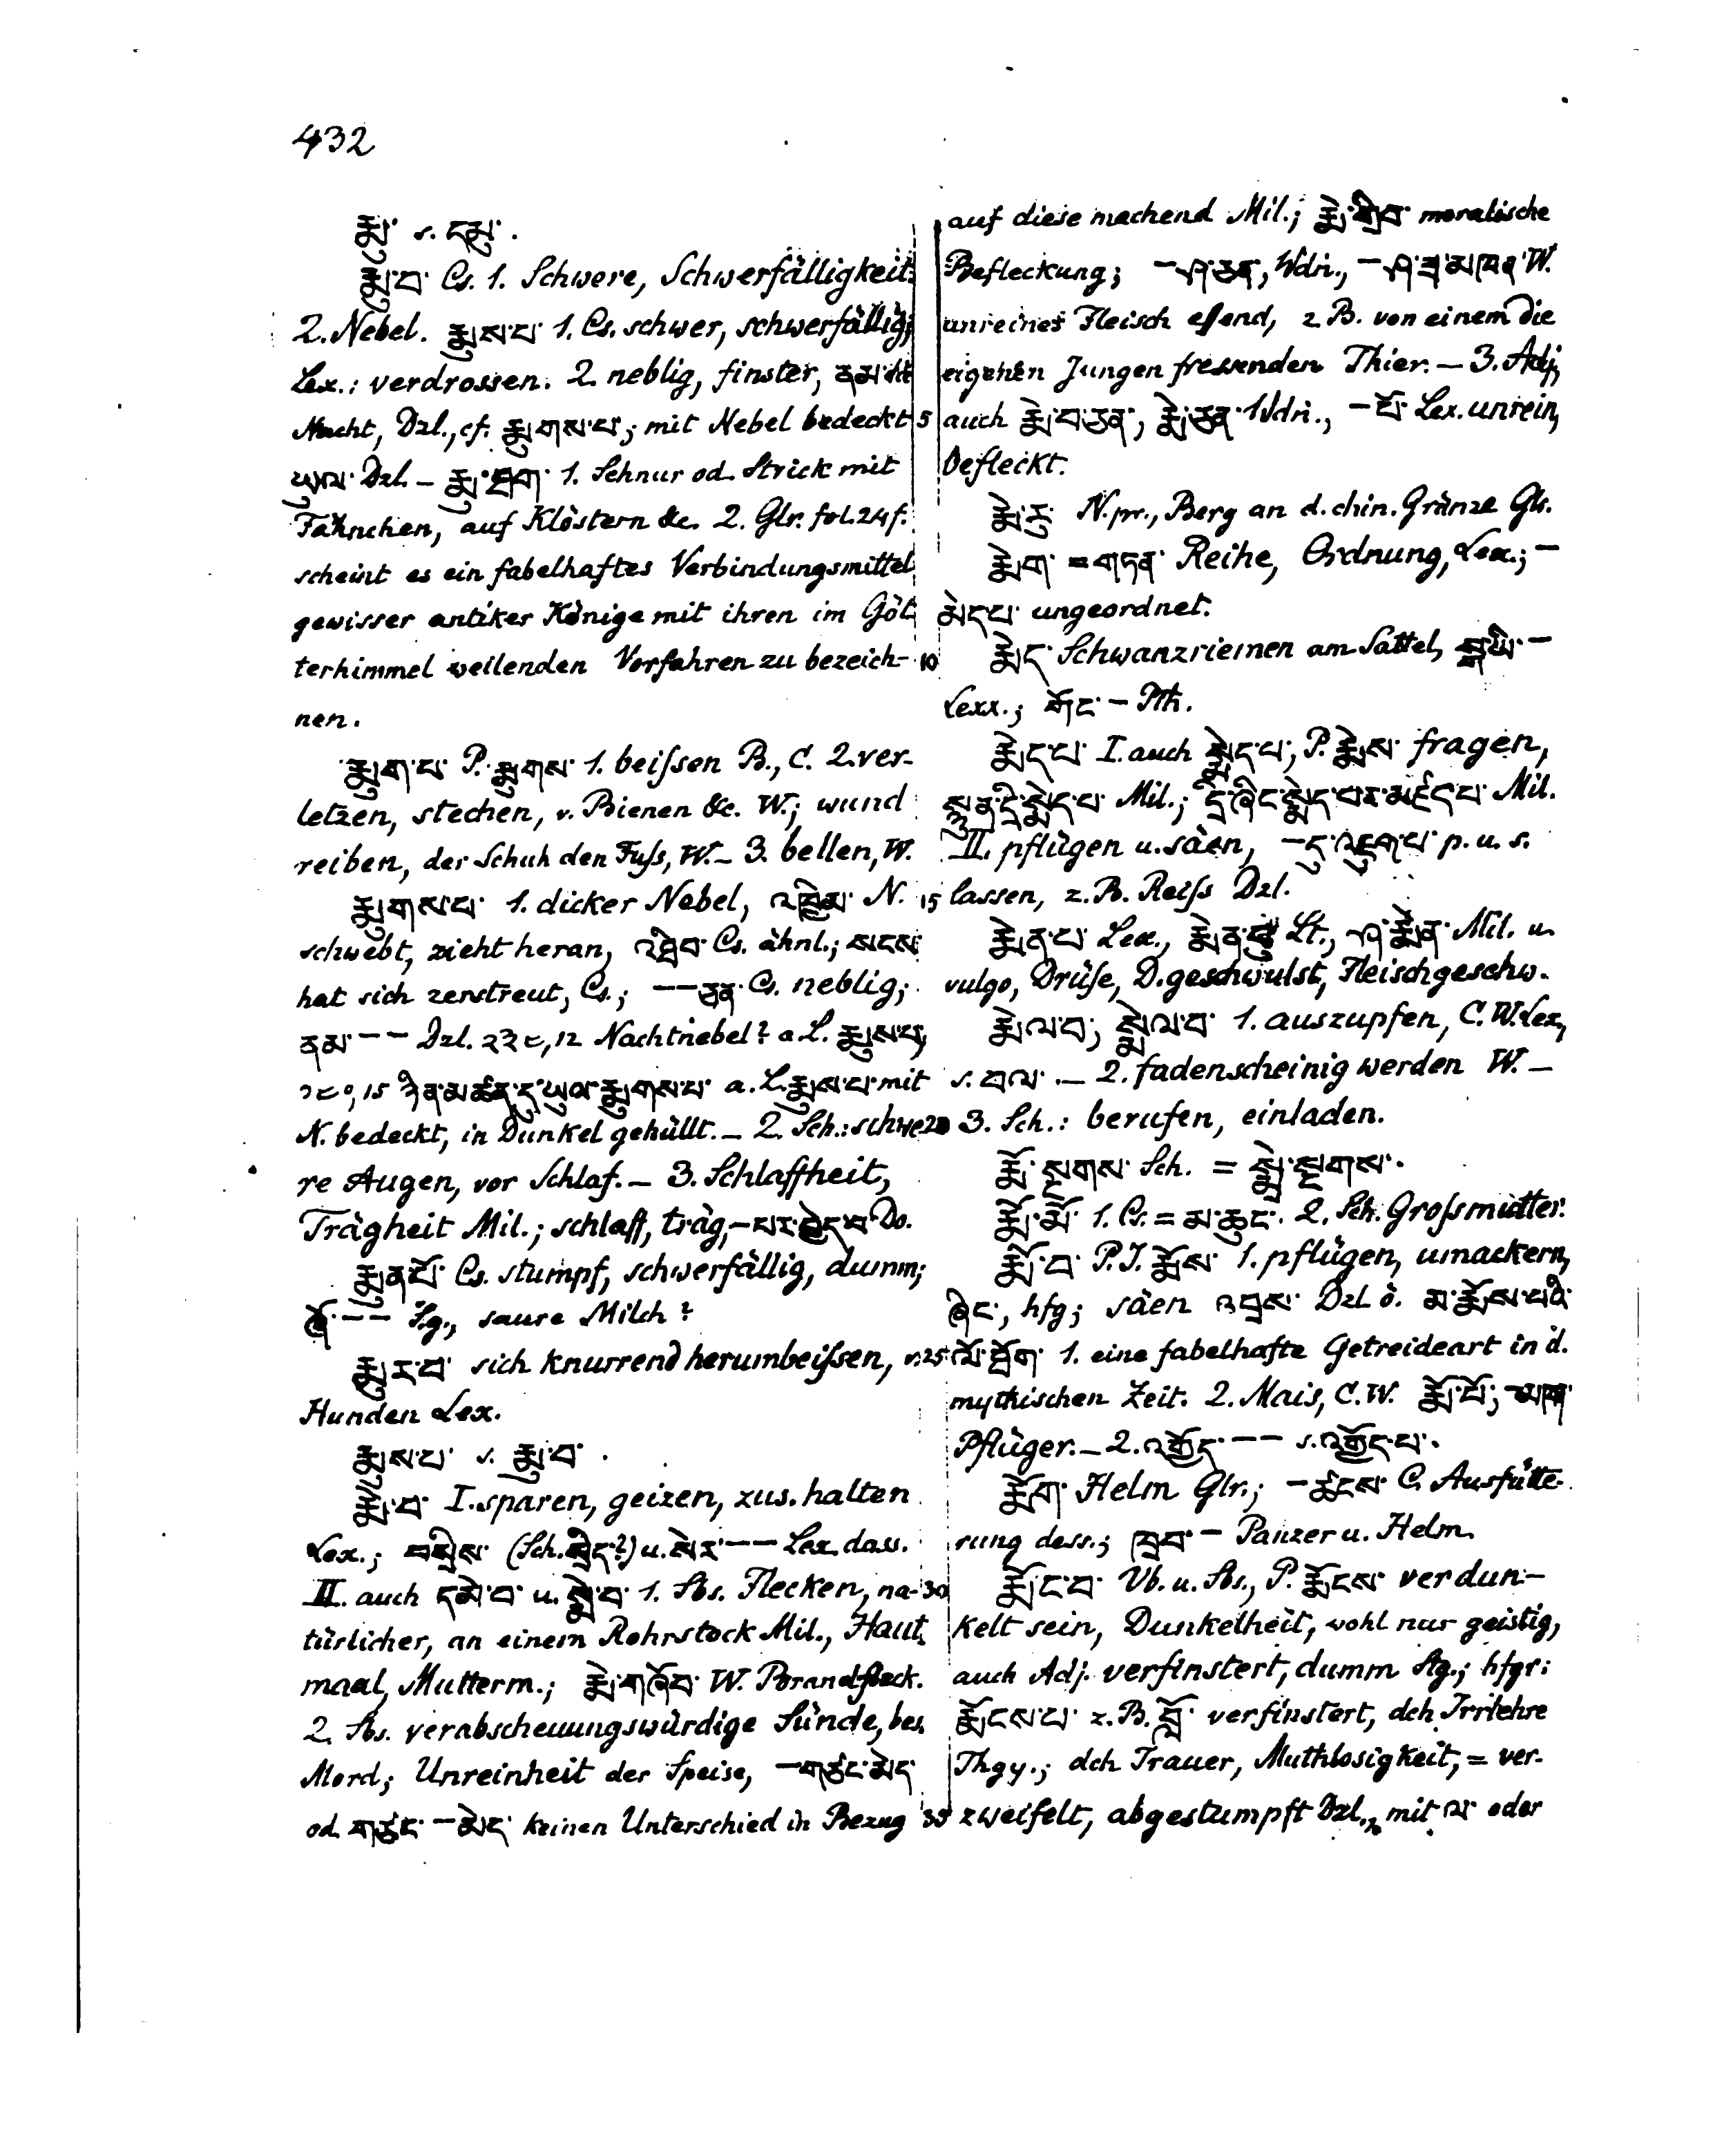 432
རྨུ་ s. དམུ་.
རྨུ་བ་ Cs. 1. Schwere, Schwerfälligkeit.
2. Nebel. རྨུས་པ་ 1. Cs. schwer, schwerfällig;
Lex.: verdrossen. 2. neblig, finster, ནམ་
Nacht, Dzl., cf. རྨུགས་པ་; mit Nebel bedeckt
ཡུལ་ Dzl. – རྨུ་ཐག་ 1. Schnur od. Strick mit
Fähnchen, auf Klöstern &c. 2. Glr. fol. 24 f.
scheint es ein fabelhaftes Verbindungsmittel
gewisser antiker Könige mit ihren im Göt
terhimmel weilenden Vorfahren zu bezeich-
nen.
རྨུག་པ་ P. རྨུགས་ 1. beissen B., C. 2. ver-
letzen, stechen, v. Bienen &c. W.; wund
reiben, der Schuh den Fuss, W. – 3. bellen, W.
རྨུགས་པ་ 1. dicker Nebel, N.
schwebt, zieht heran, འཐིབ་ Cs. ähnl.; སངས་
hat sich zerstreut, Cs.; –– ཅན་ Cs. neblig;
ནམ་ –– Dzl. ༢༢༨, 12 Nachtnebel? a. L. རྨུས་པ་,
༡༨༠, 15 ཉིན་མཚན་དུ་ཡུལ་རྨུགས་པ་ a. L. རྨུས་པ་ mit
N. bedeckt, in Dunkel gehüllt. – 2. Sch.: schwe
re Augen, vor Schlaf. – 3. Schlaffheit,
Trägheit Mil.; schlaff, träg, – པར་བྱེད་པ་ Do.
རྨུན་པོ་ Cs. stumpf, schwerfällig, dumm;
ཞོ་ –– S.g., saure Milch?
རྨུར་བ་ sich knurrend herumbeissen, v.
Hunden Lex.
རྨུས་པ་ s. རྨུ་བ་.
རྨེ་བ་ I. sparen, geizen, zus. halten
Lex.; (Sch. ?) u. སེར་ –– Lex. dass.
II. auch དམེ་བ་ u. སྨེ་བ་ 1. Sbs. Flecken, na-
türlicher, an einem Rohrstock Mil., Haut
maal, Mutterm.; རྨེ་གཞོབ་ W. Brandfleck.
2. Sbs. verabscheuungswürdige Sünde, bes.
Mord; Unreinheit der Speise, – གཙང་མེད་
od. གཙང་ – མེད་ keinen Unterschied in Bezug
auf diese machend Mil.; རྨེ་གྲིབ་ moralische
Befleckung; – ཤ་ཅན་, Wdn., – ཤ་ཟ་མཁན་ W.
unreines Fleisch essend, z. B. von einem die
eigenen Jungen fressenden Thier. – 3. Adj.
5 auch རྨེ་བ་ཅན་, རྨེ་ཅན་ Wdn., – པོ་ Lex. unrein,
befleckt.
རྨེ་རུ་ N. pr., Berg an d. chin. Gränze Glr.
རྨེག་ = གཏན་ Reihe, Ordnung, Lex.; –
མེད་པ་ ungeordnet.
10 རྨེད་ Schwanzriemen am Sattel, –
Lexx.; གོང་ – Pth.
རྨེད་པ་ I. auch སྨེད་པ་, P. རྨེས་ fragen,
སྙུན་དྲི་སྨེད་པ་ Mil.; དྲི་ཞིང་སྨེད་པར་མཛད་པ་ Mil.
II. pflügen u. säen, – དུ་འཇུག་པ་ p. u. s.
15 lassen, z. B. Reiss Dzl.
རྨེན་པ་ Lex., རྨེན་བུ་ Lt., ཤ་རྨེན་ Mil. u.
vulgo, Drüse, D.geschwulst, Fleischgeschw.
རྨེལ་བ་, སྨེལ་བ་ 1. auszupfen, C. W. Lex,
s. བལ་. – 2. fadenscheinig werden W. –
20 3. Sch.: berufen, einladen.
རྨོ་སྔགས་ Sch. = སྨེ་སྔགས་.
རྨོ་མོ་ 1. Cs. = མ་ཆུང་. 2. Sch. Grossmutter.
རྨོ་བ་ P. I. རྨོས་ 1. pflügen, umackern,
ཞིང་, hfg; säen འབྲས་ Dzl. ö. མ་རྨོས་པའི་
25 ལོ་ཐོག་ 1. eine fabelhafte Getreideart in d.
mythischen Zeit. 2. Mais, C. W. རྨོ་པོ་, – མཁན་
Pflüger. – 2. འགྱོད་ –– s. འགྱོད་པ་.
རྨོག་ Helm Glr.; – ཚངས་ C. Ausfütte-
rung dess.; ཁྲབ་ – Panzer u. Helm.
30 རྨོང་བ་ Vb. u. Sbs., P. རྨོངས་ verdun-
kelt sein, Dunkelheit, wohl nur geistig,
auch Adj. verfinstert, dumm Stg.; hfgr:
རྨོངས་པ་ z. B. བློ་ verfinstert, dch Irrlehre
Thgy.; dch Trauer, Muthlosigkeit, = ver-
35 zweifelt, abgestumpft Dzl., mit ལ་ oder